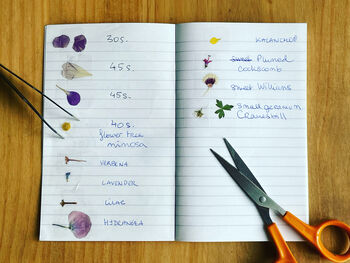 30s.
45s.
45s.
40s.
flower tree
mimosa
VERBENA
LAVENDER
LILAC
HYDRANGEA
KALANCHOE
Plumed
cockscomb
Sweet Williams
small geranium
Cranesbill